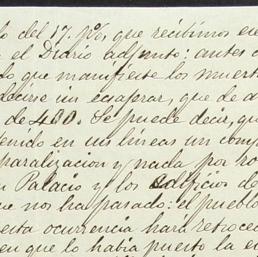 o del 17. pº, que recibimos en
e el Diario adjunto; antes a
lo que manifieste los muert
decirse sin exaprar, que de a
de 400. Se puede decir, qu
tenido en sus lineas un comp
paralizacion y nada por ro
u Palacio y los edificios de
ue nos ha pasado: el pueblo
esta ocurrencia hará retroced
en que lo habia puesto la e